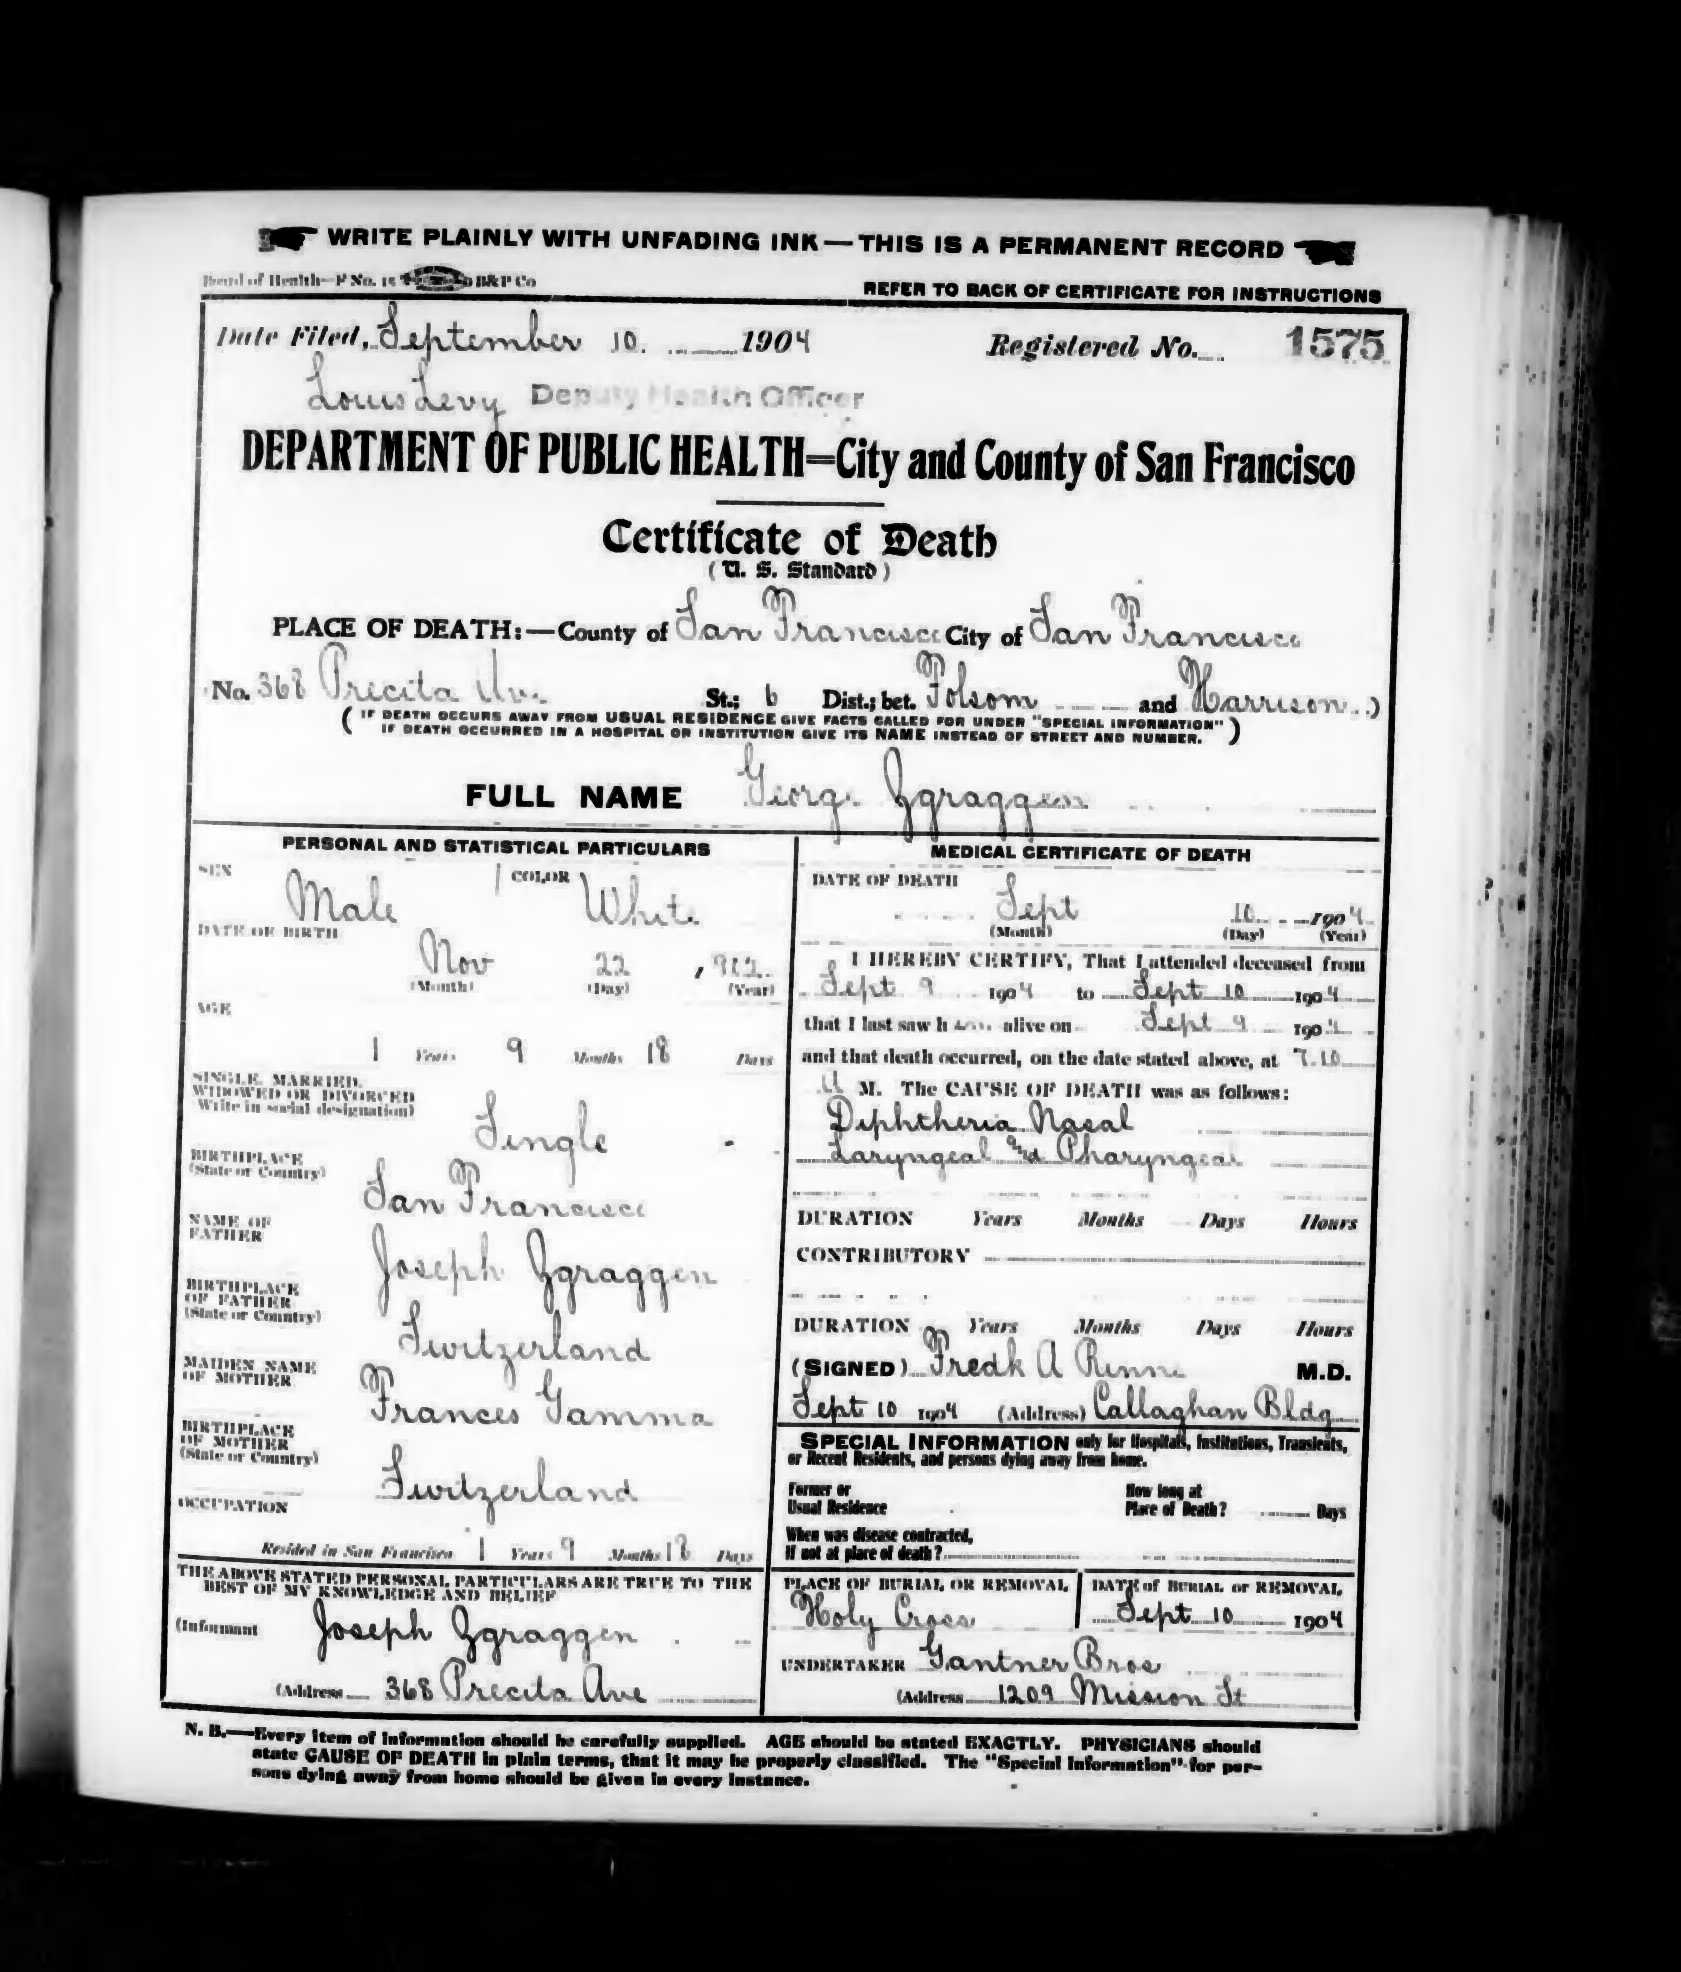 WRITE PLAINLY WITH UNFADING INK—THIS IS A PERMANENT RECORD
Board of Health—F No. 15 B&P Co
REFER TO BACK OF CERTIFICATE FOR INSTRUCTIONS
Date Filed, September 10. 1904 Registered No. 1575
Louis Levy Deputy Health Officer
DEPARTMENT OF PUBLIC HEALTH=City and County of San Francisco
Certificate of Death
(U. S. Standard)
PLACE OF DEATH:—County of San Francisco City of San Francisco
No. 368 Precita Av. St.; 6 Dist.; bet. Folsom and Harrison )
( IF DEATH OCCURS AWAY FROM USUAL RESIDENCE GIVE FACTS CALLED FOR UNDER "SPECIAL INFORMATION" )
IF DEATH OCCURRED IN A HOSPITAL OR INSTITUTION GIVE ITS NAME INSTEAD OF STREET AND NUMBER.
FULL NAME George Zgraggen
PERSONAL AND STATISTICAL PARTICULARS
SEX Male COLOR White
DATE OF BIRTH
Nov 22 , 902
(Month) (Day) (Year)
AGE
1 Years 9 Months 18 Days
SINGLE, MARRIED,
WIDOWED OR DIVORCED
Write in social designation)
Single
BIRTHPLACE
(State or Country)
San Francisco
NAME OF
FATHER
Joseph Zgraggen
BIRTHPLACE
OF FATHER
(State or Country)
Switzerland
MAIDEN NAME
OF MOTHER
Frances Gamma
BIRTHPLACE
OF MOTHER
(State or Country)
Switzerland
OCCUPATION
Resided in San Francisco 1 Years 9 Months 18 Days
THE ABOVE STATED PERSONAL PARTICULARS ARE TRUE TO THE
BEST OF MY KNOWLEDGE AND BELIEF
(Informant Joseph Zgraggen
(Address 368 Precita Ave
MEDICAL CERTIFICATE OF DEATH
DATE OF DEATH
Sept 10 1904
(Month) (Day) (Year)
I HEREBY CERTIFY, That I attended deceased from
Sept 9 1904 to Sept 10 1904
that I last saw h im alive on Sept 9 1904
and that death occurred, on the date stated above, at 7.10
A M. The CAUSE OF DEATH was as follows:
Diphtheria Nasal
Laryngeal and Pharyngeal
DURATION Years Months Days Hours
CONTRIBUTORY
DURATION Years Months Days Hours
(SIGNED) Fredk A Rinne M.D.
Sept 10 1904 (Address) Callaghan Bldg
SPECIAL INFORMATION only for Hospitals, Institutions, Transients,
or Recent Residents, and persons dying away from home.
Former or
Usual Residence
How long at
Place of Death? Days
When was disease contracted,
If not at place of death?
PLACE OF BURIAL OR REMOVAL
Holy Cross
DATE of BURIAL or REMOVAL
Sept 10 1904
UNDERTAKER Gantner Bros
(Address 1209 Mission St
N. B.—Every item of information should be carefully supplied. AGE should be stated EXACTLY. PHYSICIANS should
state CAUSE OF DEATH in plain terms, that it may be properly classified. The "Special Information" for per-
sons dying away from home should be given in every instance.